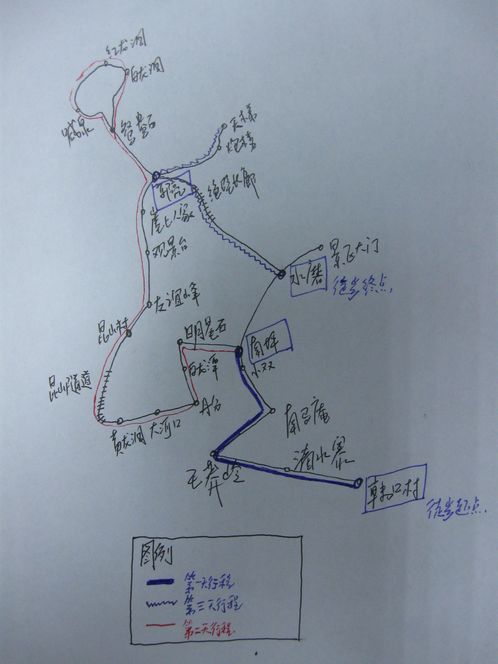 红龙洞
白龙洞
喊泉
鸳鸯石
天梯
郭亮
绝壁长廊
崖上人家
观景台
景区大门
水磨
徒步终点
友谊峰
昆山村
明星石
南坪
小双
白龙潭
昆山通道
丹台
黄龙洞
大河口
南马庵
清水寨
王莽岭
韩口村
徒步起点
图例
第一天行程
第三天行程
第二天行程